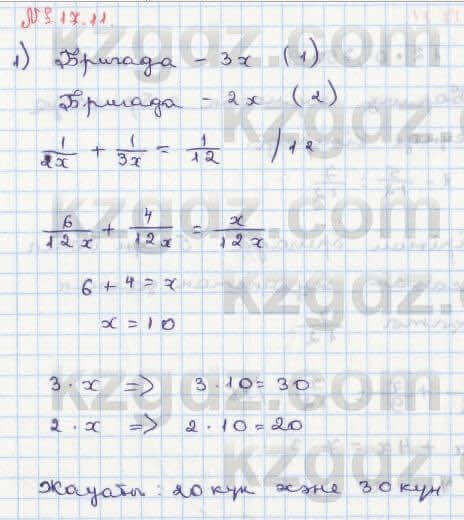 № 5.17.11.
1) Бригада - 3x (1)
Бригада - 2x (2)
1/2x + 1/3x = 1/12 /12
6/12x + 4/12x = x/12x
6 + 4 = x
x = 10
3 · x => 3 · 10 = 30
2 · x => 2 · 10 = 20
Жауабы : 20 күн және 30 күн
kzgdz.com
kzgdz.com
kzgdz.com
kzgdz.com
kzgdz.com